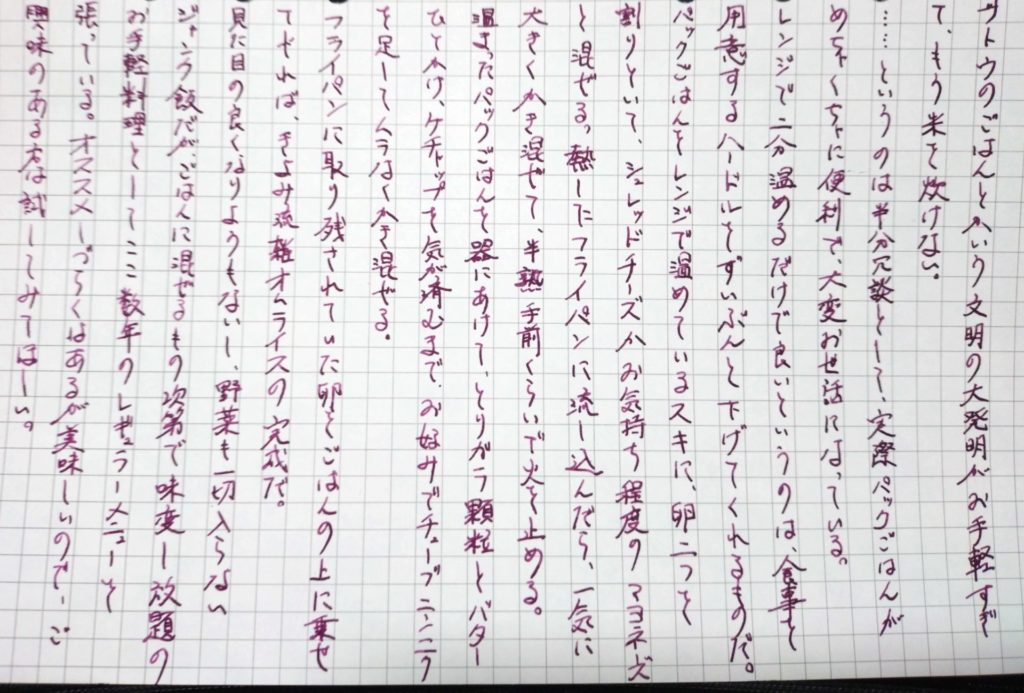 サトウのごはんとかいう文明の大発明がお手軽すぎ
て、もう米を炊けない。
……というのは半分冗談として、実際パックごはんが
めちゃくちゃに便利で、大変お世話になっている。
レンジで二分温めるだけで良いというのは、食事を
用意するハードルをずいぶんと下げてくれるものだ。
パックごはんをレンジで温めているスキに、卵二つを
割りといて、シュレッドチーズかお気持ち程度のマヨネーズ
と混ぜる。熱したフライパンに流し込んだら、一気に
大きくかき混ぜて、半熟手前くらいで火を止める。
温まったパックごはんを器にあけて、とりガラ顆粒とバター
ひとかけ、ケチャップを気が済むまで、お好みでチューブニンニク
を足してムラなくかき混ぜる。
フライパンに取り残されていた卵をごはんの上に乗せ
てやれば、きよみ流雑オムライスの完成だ。
見た目の良くなりようもないし、野菜も一切入らない
ジャンク飯だが、ごはんに混ぜるもの次第で味変し放題の
お手軽料理としてここ数年のレギュラーメニューを
張っている。オススメしづらくはあるが美味しいので、ご
興味のある方は試してみてほしい。